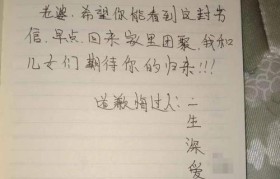 老婆,希望你能看到这封书
信,早点回来家里团聚,我和
儿女们期待你的归来!!!
道歉悔过人:一
生
深
爱